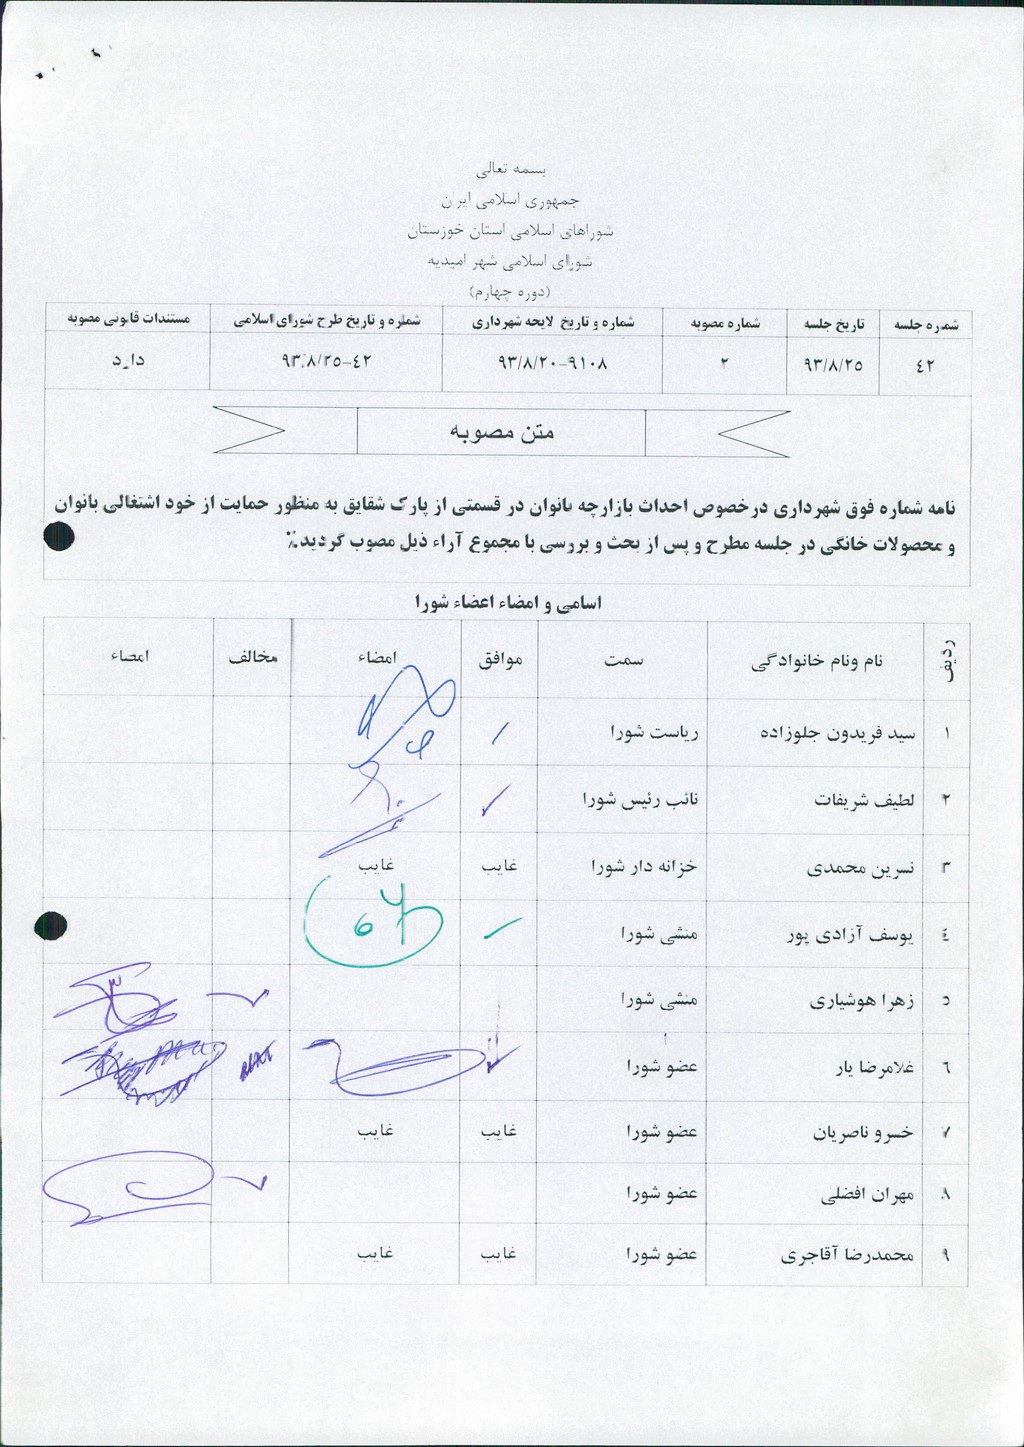 بسمه تعالی
جمهوری اسلامی ایران
شوراهای اسلامی استان خوزستان
شورای اسلامی شهر امیدیه
(دوره چهارم)
شماره جلسه تاریخ جلسه شماره مصوبه شماره و تاریخ لایحه شهرداری شماره و تاریخ طرح شورای اسلامی مستندات قانونی مصوبه
٤٢ ٩٣/٨/٢٥ ٢ ٩٣/٨/٢٠-٩١٠٨ ٩٣/٨/٢٥-٤٢ دارد
متن مصوبه
نامه شماره فوق شهرداری درخصوص احداث بازارچه بانوان در قسمتی از پارک شقایق به منظور حمایت از خود اشتغالی بانوان
و محصولات خانگی در جلسه مطرح و پس از بحث و بررسی با مجموع آراء ذیل مصوب گردید.٪
اسامی و امضاء اعضاء شورا
ردیف نام ونام خانوادگی سمت موافق امضاء مخالف امضاء
١ سید فریدون جلوزاده ریاست شورا
٢ لطیف شریفات نائب رئیس شورا
٣ نسرین محمدی خزانه دار شورا غایب غایب
٤ یوسف آزادی پور منشی شورا
٥ زهرا هوشیاری منشی شورا
٦ غلامرضا یار عضو شورا
٧ خسرو ناصریان عضو شورا غایب غایب
٨ مهران افضلی عضو شورا
٩ محمدرضا آقاجری عضو شورا غایب غایب